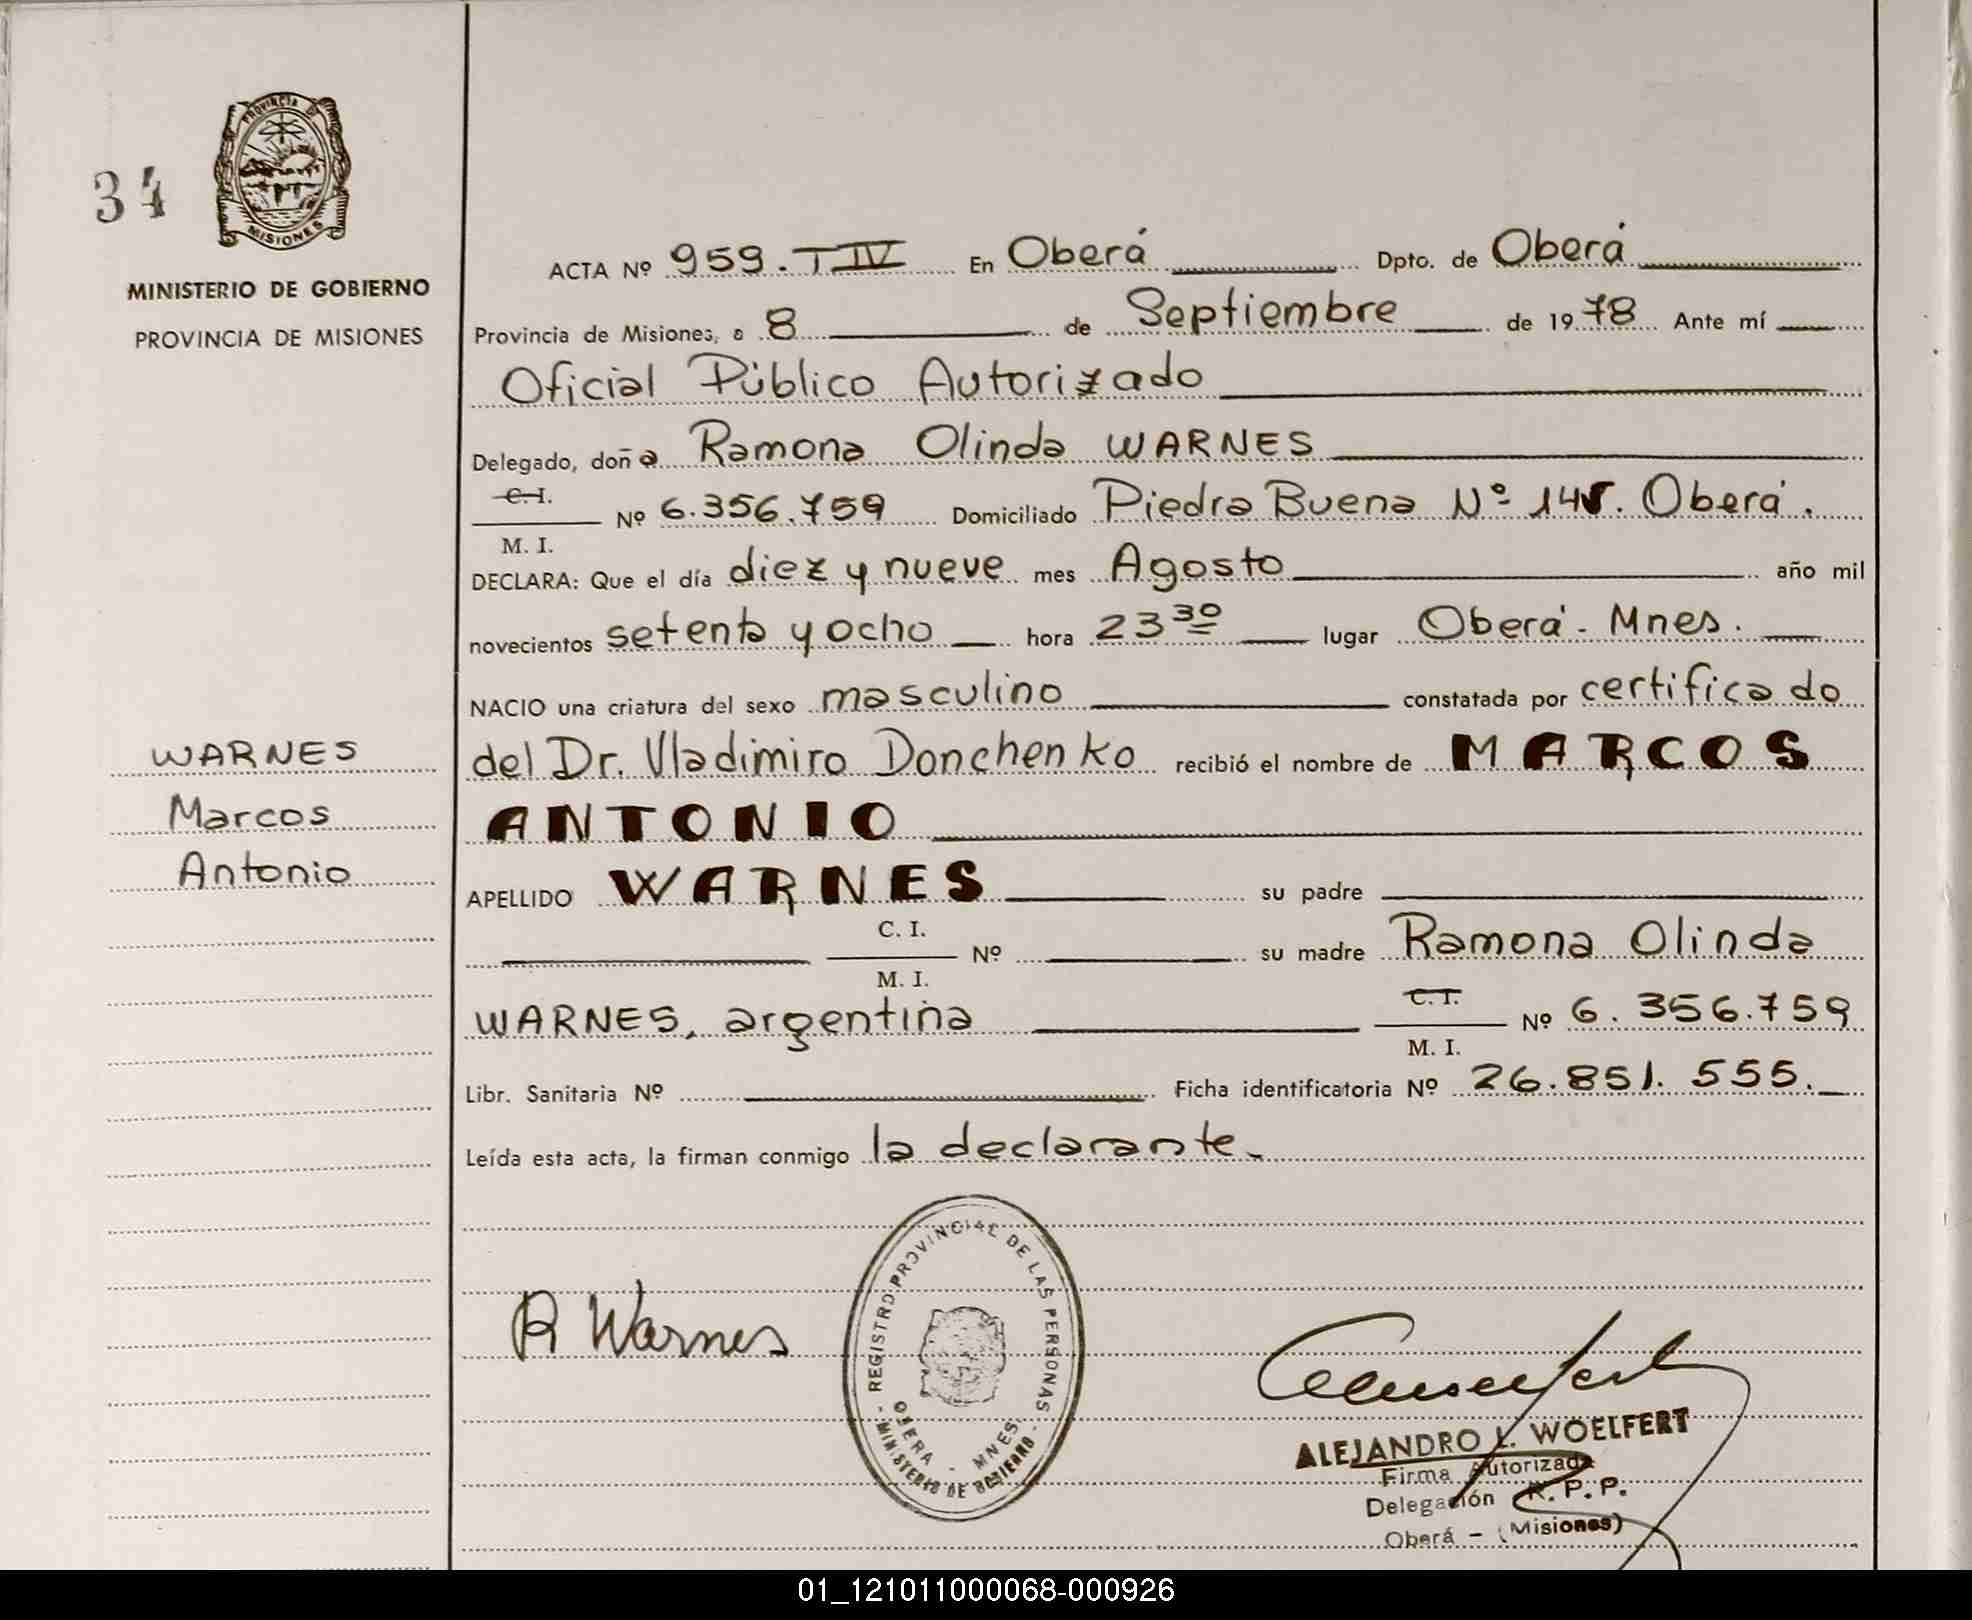 PROVINCIA DE
MISIONES
34
MINISTERIO DE GOBIERNO
PROVINCIA DE MISIONES
ACTA Nº 959. T IV En Oberá Dpto. de Oberá
Provincia de Misiones, a 8 de Septiembre de 1978 Ante mí
Oficial Público Autorizado
Delegado, doña Ramona Olinda WARNES
C. I.
Nº 6.356.759 Domiciliado Piedra Buena Nº 145. Oberá.
M. I.
DECLARA: Que el día diez y nueve mes Agosto año mil
novecientos setenta y ocho hora 23 30 lugar Oberá - Mnes.
NACIO una criatura del sexo masculino constatada por certificado
del Dr. Vladimiro Donchenko recibió el nombre de MARCOS
ANTONIO
WARNES
Marcos
Antonio
APELLIDO WARNES su padre
C. I.
Nº su madre Ramona Olinda
M. I.
WARNES, argentina C. I. Nº 6.356.759
M. I.
Libr. Sanitaria Nº Ficha identificatoria Nº 26.851.555.
Leída esta acta, la firman conmigo la declarante.
R Warnes
- REGISTRO PROVINCIAL DE LAS PERSONAS -
OBERA - MNES.
MINISTERIO DE GOBIERNO
ALEJANDRO L. WOELFERT
Firma Autorizada
Delegación R. P. P.
Oberá - (Misiones)
01_121011000068-000926